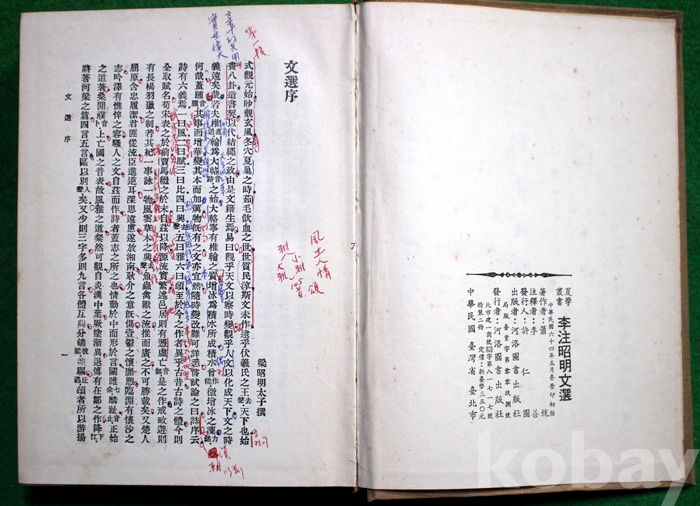 夏學叢書 李注昭明文選
中華民國六十四年五月臺景印初版
著作者：蕭統
注釋者：李善
發行人：許仁圖
出版者：河洛圖書出版社
發行者：河洛圖書出版社
局版臺業字第零零玖捌號
北市建一商號53字第八一七一七號
精裝二冊 定價：新臺幣三五〇元
中華民國 臺灣省 臺北市
文選序
梁昭明太子撰
式觀元始眇覿玄風冬穴夏巢之時茹毛飲血之世世質民淳斯文未作逮乎伏羲氏之王天下也始
畫八卦造書契以代結繩之政由是文籍生焉易曰觀乎天文以察時變觀乎人文以化成天下文之時
義遠矣哉若夫椎輪為大輅之始大輅寧有椎輪之質增冰為積水所成積水曾微增冰之凜
何哉蓋踵其事而增華變其本而加厲物既有之文亦宜然隨時變改難可詳悉嘗試論之曰詩序云
詩有六義焉一曰風二曰賦三曰比四曰興五曰雅六曰頌至於今之作者異乎古昔古詩之體今則
全取賦名荀宋表之於前賈馬繼之於末自茲以降源流實繁述邑居則有憑虛亡是之作戒畋遊則
有長楊羽獵之制若其紀一事詠一物風雲草木之興魚蟲禽獸之流推而廣之不可勝載矣又楚人
屈原含忠履潔君匪從流臣進逆耳深思遠慮遂放湘南耿介之意既傷壹鬱之懷靡愬臨淵有懷沙之
志吟澤有憔悴之容騷人之文自茲而作詩者蓋志之所之也情動於中而形於言關雎麟趾正始
之道著桑間濮上亡國之音表故風雅之道粲然可觀自炎漢中葉厥塗漸異退傅有在鄒之作降
將著河梁之篇四言五言區以別矣又少則三字多則九言各體互興分鑣並驅頌者所以游揚
文選序
一
第一段
風土人情
頌
kobay